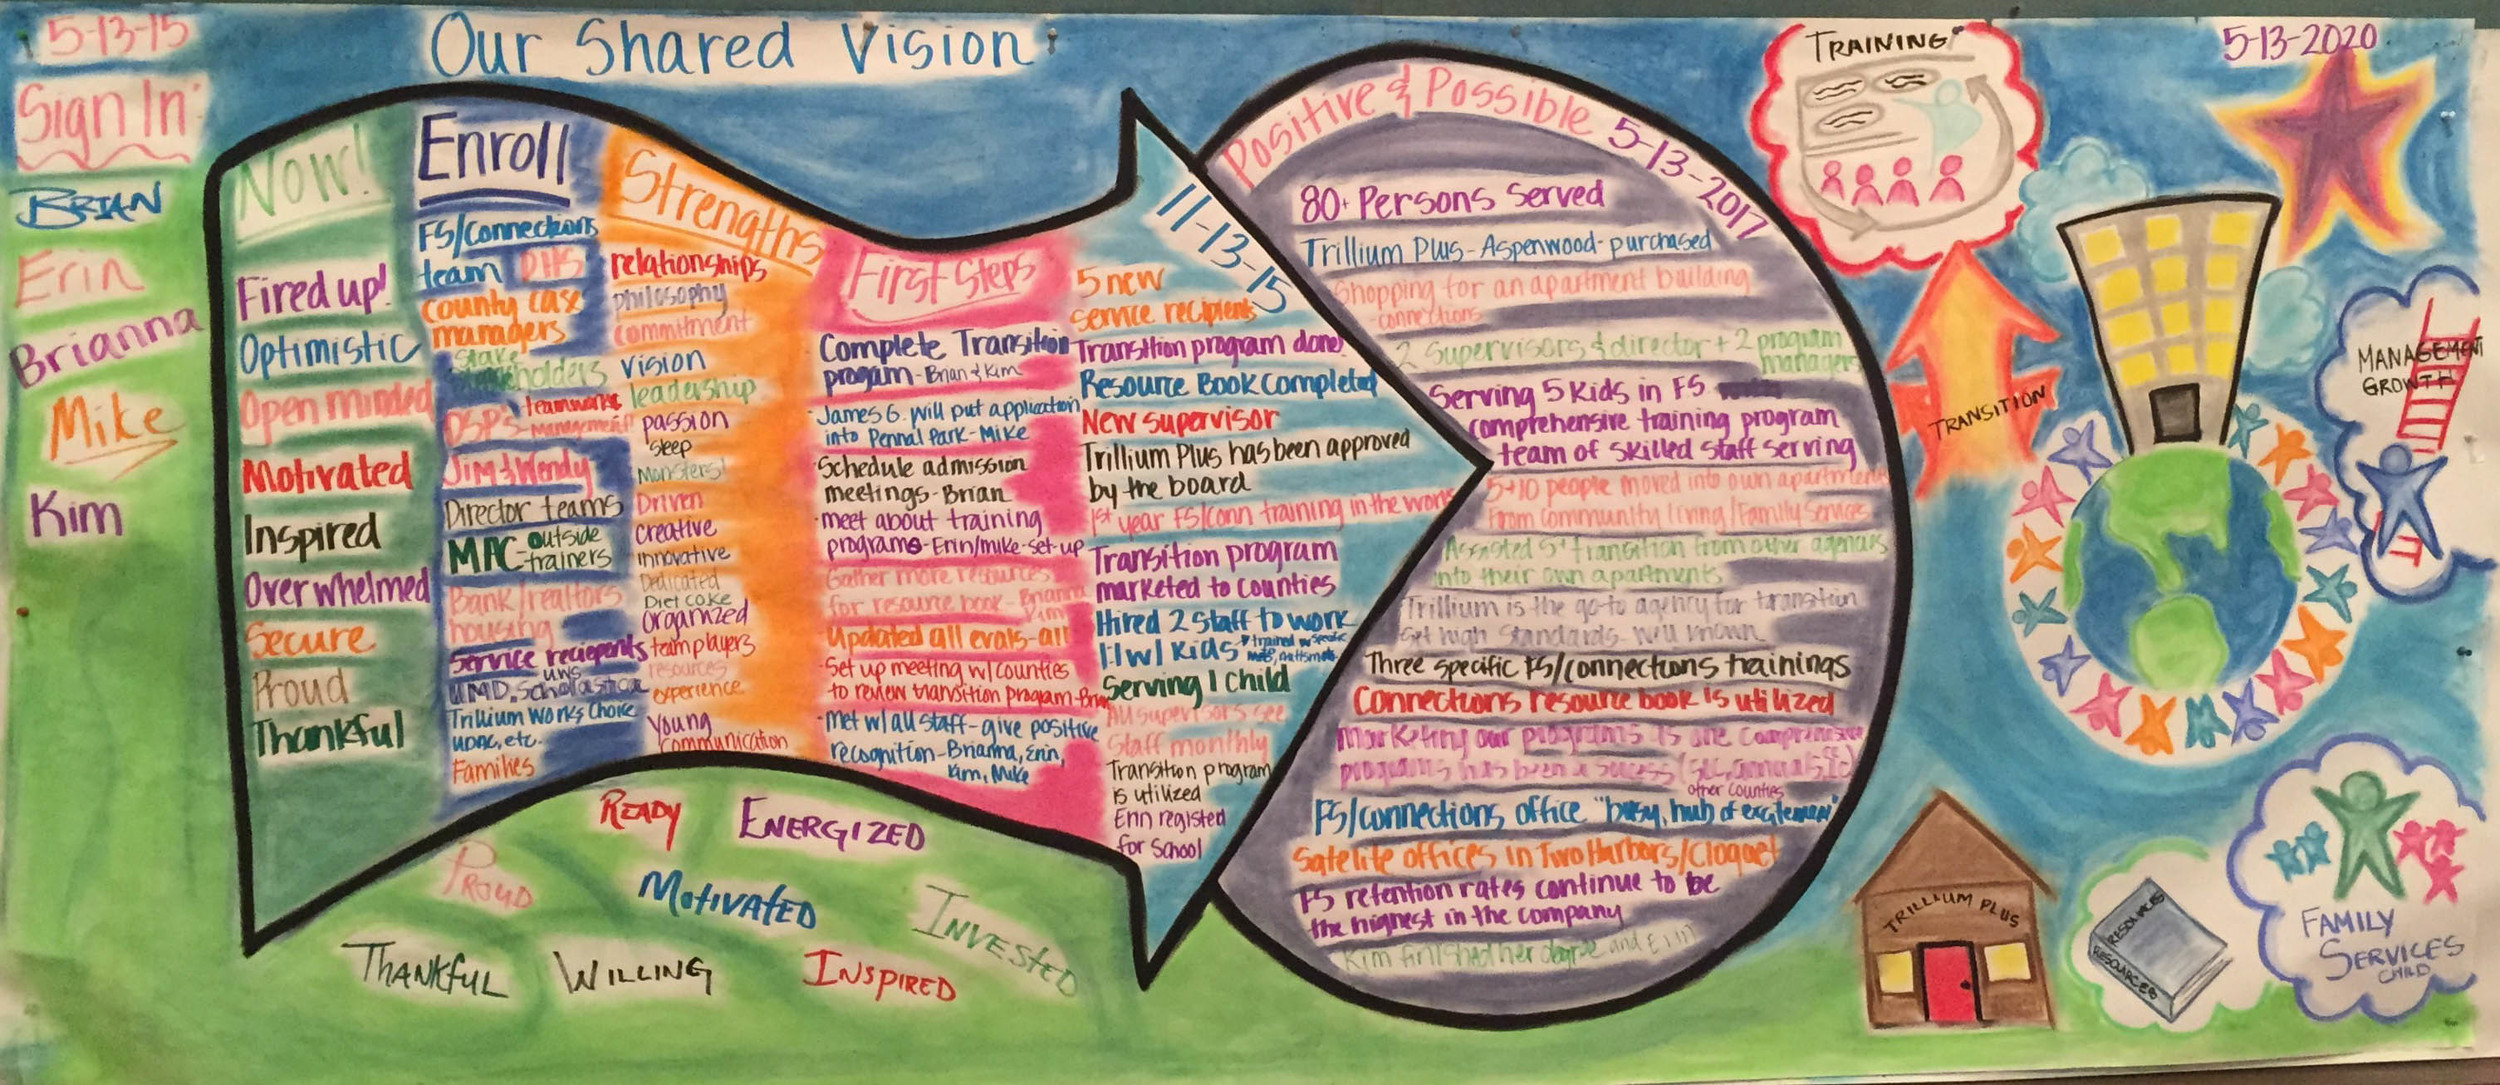 5-13-15
Sign In
Brian
Erin
Brianna
Mike
Kim
Our Shared Vision
Now!
Fired up!
Optimistic
Open minded
Motivated
Inspired
Overwhelmed
Secure
Proud
Thankful
Enroll
FS/Connections
team DHS
county case
managers
Stake
holders
DSP's
teamworks
Management
Jim & Wendy
Director teams
MAC-outside
-trainers
Bank/realtors
housing
Service reciepents
UWS
UMD, Scholastica
Trillium Works Choice
UDAC, etc.
Families
Strengths
relationships
philosophy
commitment
vision
leadership
passion
Sleep
Monsters!
Driven
creative
innovative
Dedicated
Diet coke
organized
team players
resources
experience
young
communication
First Steps
Complete Transition
progam-Brian & Kim
-James G. will put application
into Pennal Park-Mike
Schedule admission
meetings-Brian
-meet about training
programs-Erin/mike-set-up
Gather more resources
for resource book-Brianna
Kim
Updated all evals-all
-Set up meeting w/counties
to review transition program-Brian
-Met w/all staff-give positive
recognition-Brianna, Erin,
Kim, Mike
11-13-15
5 new
service recipients
Transition program done!
Resource Book Completed
New supervisor
Trillium Plus has been approved
by the board
1st year FS/Conn training in the works
Transition program
marketed to counties
Hired 2 Staff to work
1:1 w/ kids trained w/specific
Serving 1 child
All supervisors see
Staff monthly
Transition program
is utilized
Erin registed
for School
Positive & Possible 5-13-2017
80+ Persons Served
Trillium Plus-Aspenwood-purchased
Shopping for an apartment building
-connections
2 Supervisors & director + 2 program
managers
Serving 5 Kids in FS
comprehensive training program
team of skilled staff serving
5+10 people moved into own apartments
from Community living/Family Services
Assisted 5+ transition from other agencies
into their own apartments
Trillium is the go-to agency for transition
Set high standards-well known
Three specific FS/connections trainings
Connections resource book is utilized
Marketing our programs is
programs has been a
other counties
FS/connections office "busy, hub of excitement"
Satelite offices in Two Harbors/Cloquet
FS retention rates continue to be
the highest in the company
Kim finished her degree and Erin
Ready
Energized
Proud
Motivated
Invested
Thankful
Willing
Inspired
Training
Transition
5-13-2020
Management
Growth
Trillium Plus
Resources
Resources
Family
Services
Child